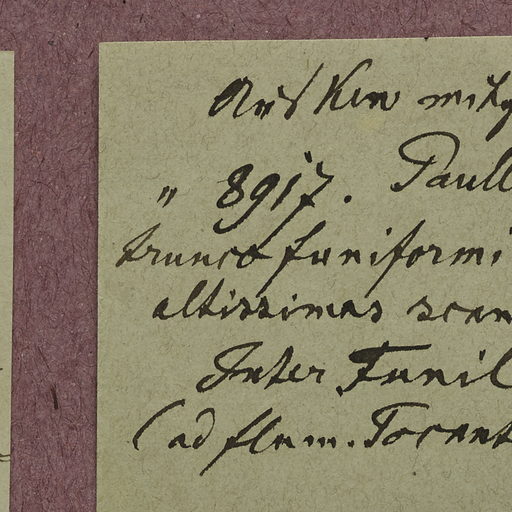 Aus Kew mitg
" 8917. Paull
trunco funiformi
altissimas scan
Inter Funil
(ad flum. Tocant